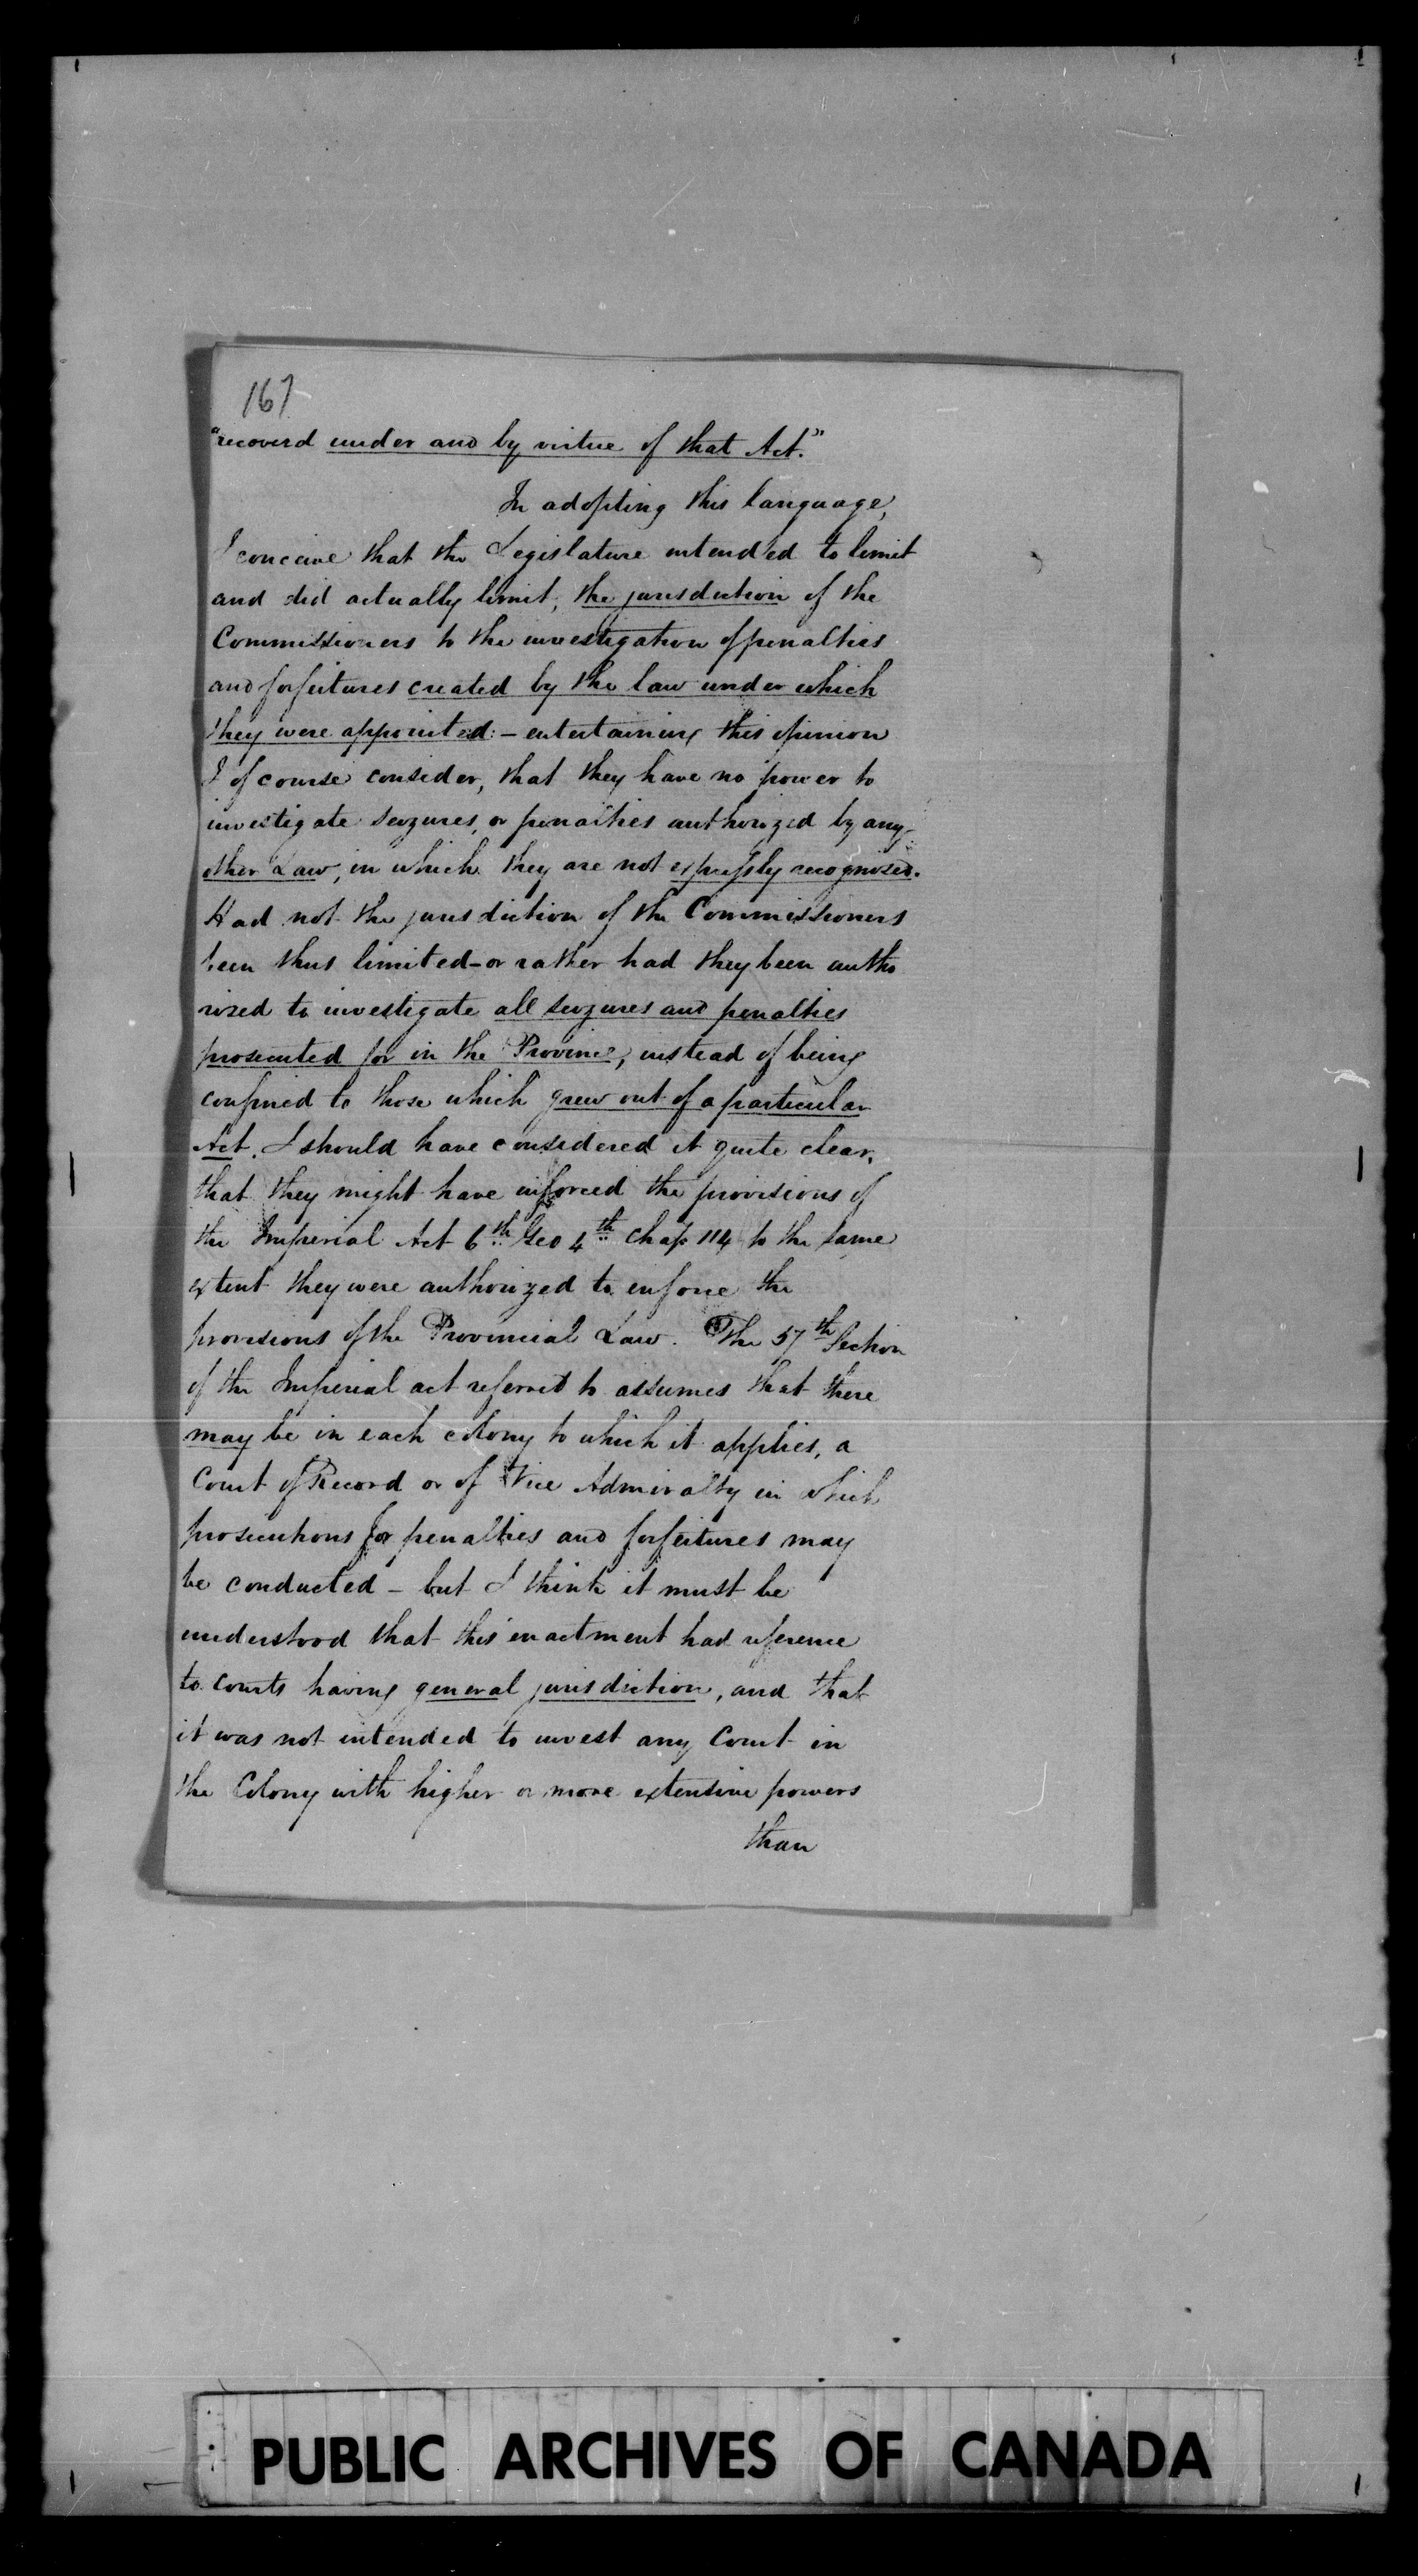 167
"recoverd under and by virtue of that Act."
In adopting this language,
I conceive that the Legislature intended to limit
and did actually limit, the jurisdiction of the
Commissioners to the investigation of penalties
and forfeitures created by the law under which
they were appointed: – entertaining this opinion
I of course consider, that they have no power to
investigate seizures, or penalties authorized by any
other Law, in which they are not expressly recognized.
Had not the jurisdiction of the Commissioners
been thus limited – or rather had they been autho
rized to investigate all seizures and penalties
prosecuted for in the Province, instead of being
confined to those which grew out of a particular
Act. I should have considered it quite clear,
that they might have inforced the provisions of
the Imperial Act 6th Geo 4th Chap 114 to the same
extent they were authorized to enforce the
provisions of the Provincial Law. The 57th Section
of the Imperial act referred to assumes that there
may be in each colony to which it applies, a
Court of Record or of Vice Admiralty in which
prosecutions for penalties and forfeitures may
be conducted – but I think it must be
understood that this enactment had reference
to courts having general jurisdiction, and that
it was not intended to invest any Court in
the Colony with higher or more extensive powers
than
PUBLIC ARCHIVES OF CANADA